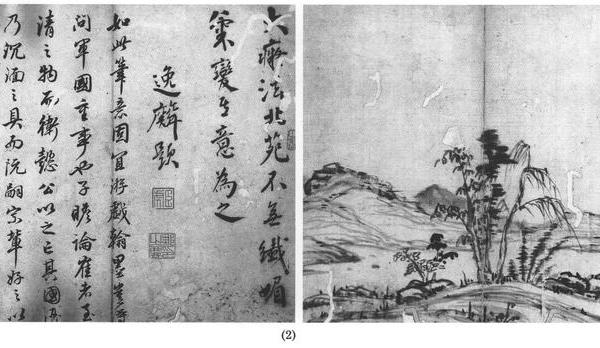 大癡法北苑不無纖媚
變意為之
逸題
如此筆意固宜游戲翰墨豈
問軍國重事也子瞻論隺者至
清之物而衛懿公以之亡其國酒
乃沉湎之具而阮嗣宗輩好之以
(2)